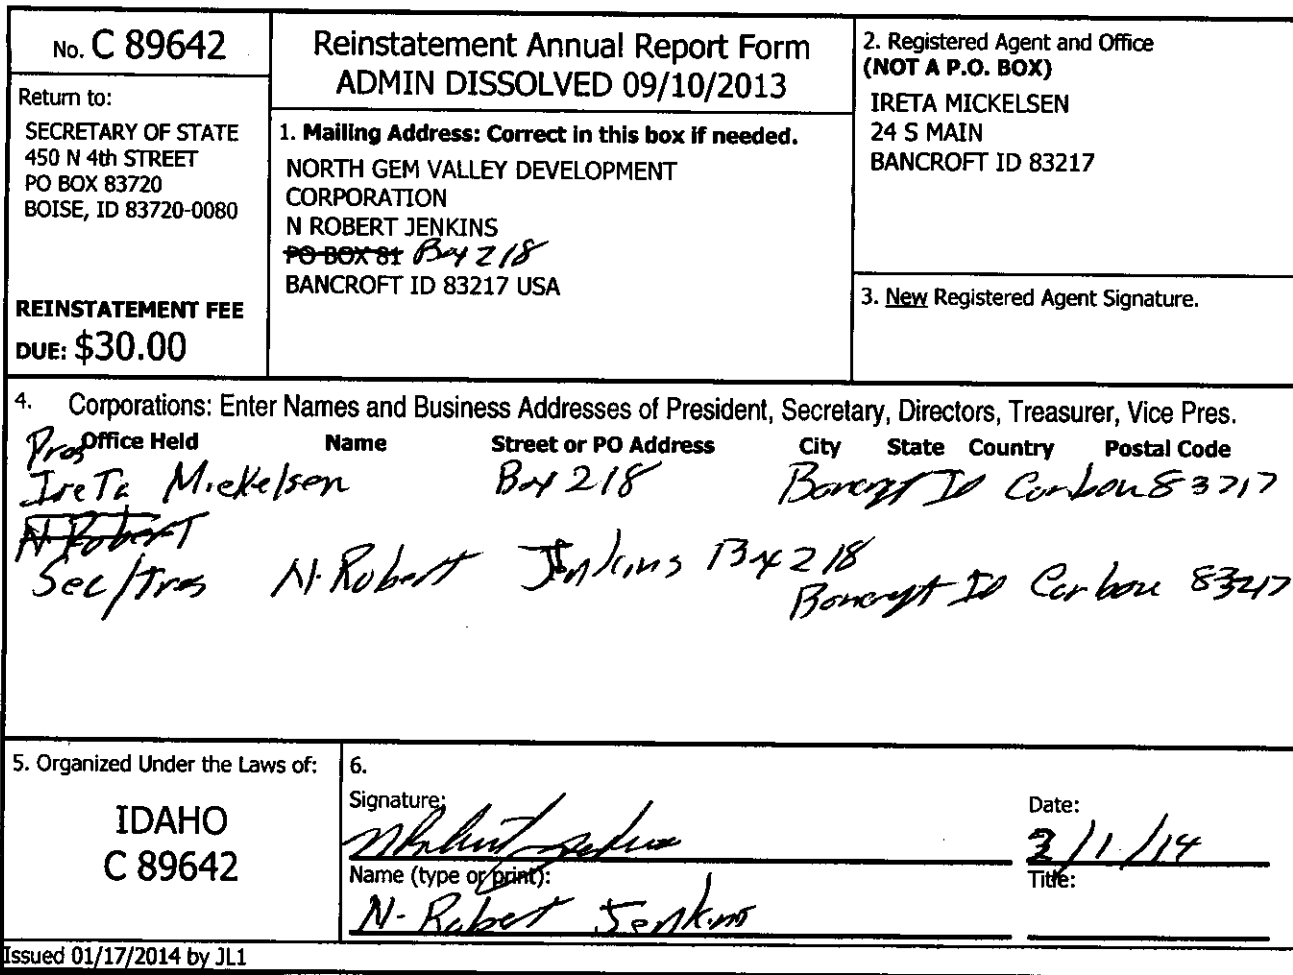 No. C 89642
Return to:
SECRETARY OF STATE
450 N 4th STREET
PO BOX 83720
BOISE, ID 83720-0080
REINSTATEMENT FEE
DUE: $30.00
Reinstatement Annual Report Form
ADMIN DISSOLVED 09/10/2013
1. Mailing Address: Correct in this box if needed.
NORTH GEM VALLEY DEVELOPMENT
CORPORATION
N ROBERT JENKINS
PO BOX 81 Box 218
BANCROFT ID 83217 USA
2. Registered Agent and Office
(NOT A P.O. BOX)
IRETA MICKELSEN
24 S MAIN
BANCROFT ID 83217
3. New Registered Agent Signature.
4. Corporations: Enter Names and Business Addresses of President, Secretary, Directors, Treasurer, Vice Pres.
Office Held Name Street or PO Address City State Country Postal Code
Pres
IreTa Mickelsen Box 218 Bancroft Id Caribou 83217
N. Robert
Sec/Tres N. Robert Jenkins Box 218
Bancroft Id Caribou 83217
5. Organized Under the Laws of:
IDAHO
C 89642
6.
Signature:
N Robert Jenkins
Name (type or print):
N. Robert Jenkins
Date:
/1/14
Title:
Issued 01/17/2014 by JL1